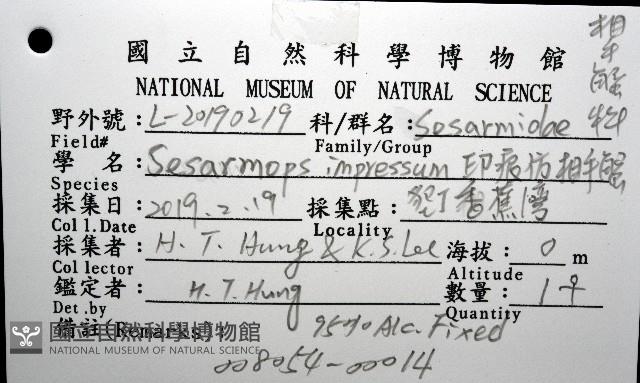 國立自然科學博物館
NATIONAL MUSEUM OF NATURAL SCIENCE
相手蟹科
野外號：L-20190219 科/群名：Sesarmidae
Field# Family/Group
學名：Sesarmops impressum 印痕仿相手蟹
Species
採集日：2019.2.19 採集點：墾丁香蕉灣
Col l.Date Locality
採集者：H. T. Hung & K.S. Lee 海拔：0 m
Col lector Altitude
鑑定者：H. T. Hung 數量：1♀
Det.by Quantity
備註(Remarks) 95% Alc. Fixed
008054-00014
國立自然科學博物館
NATIONAL MUSEUM OF NATURAL SCIENCE